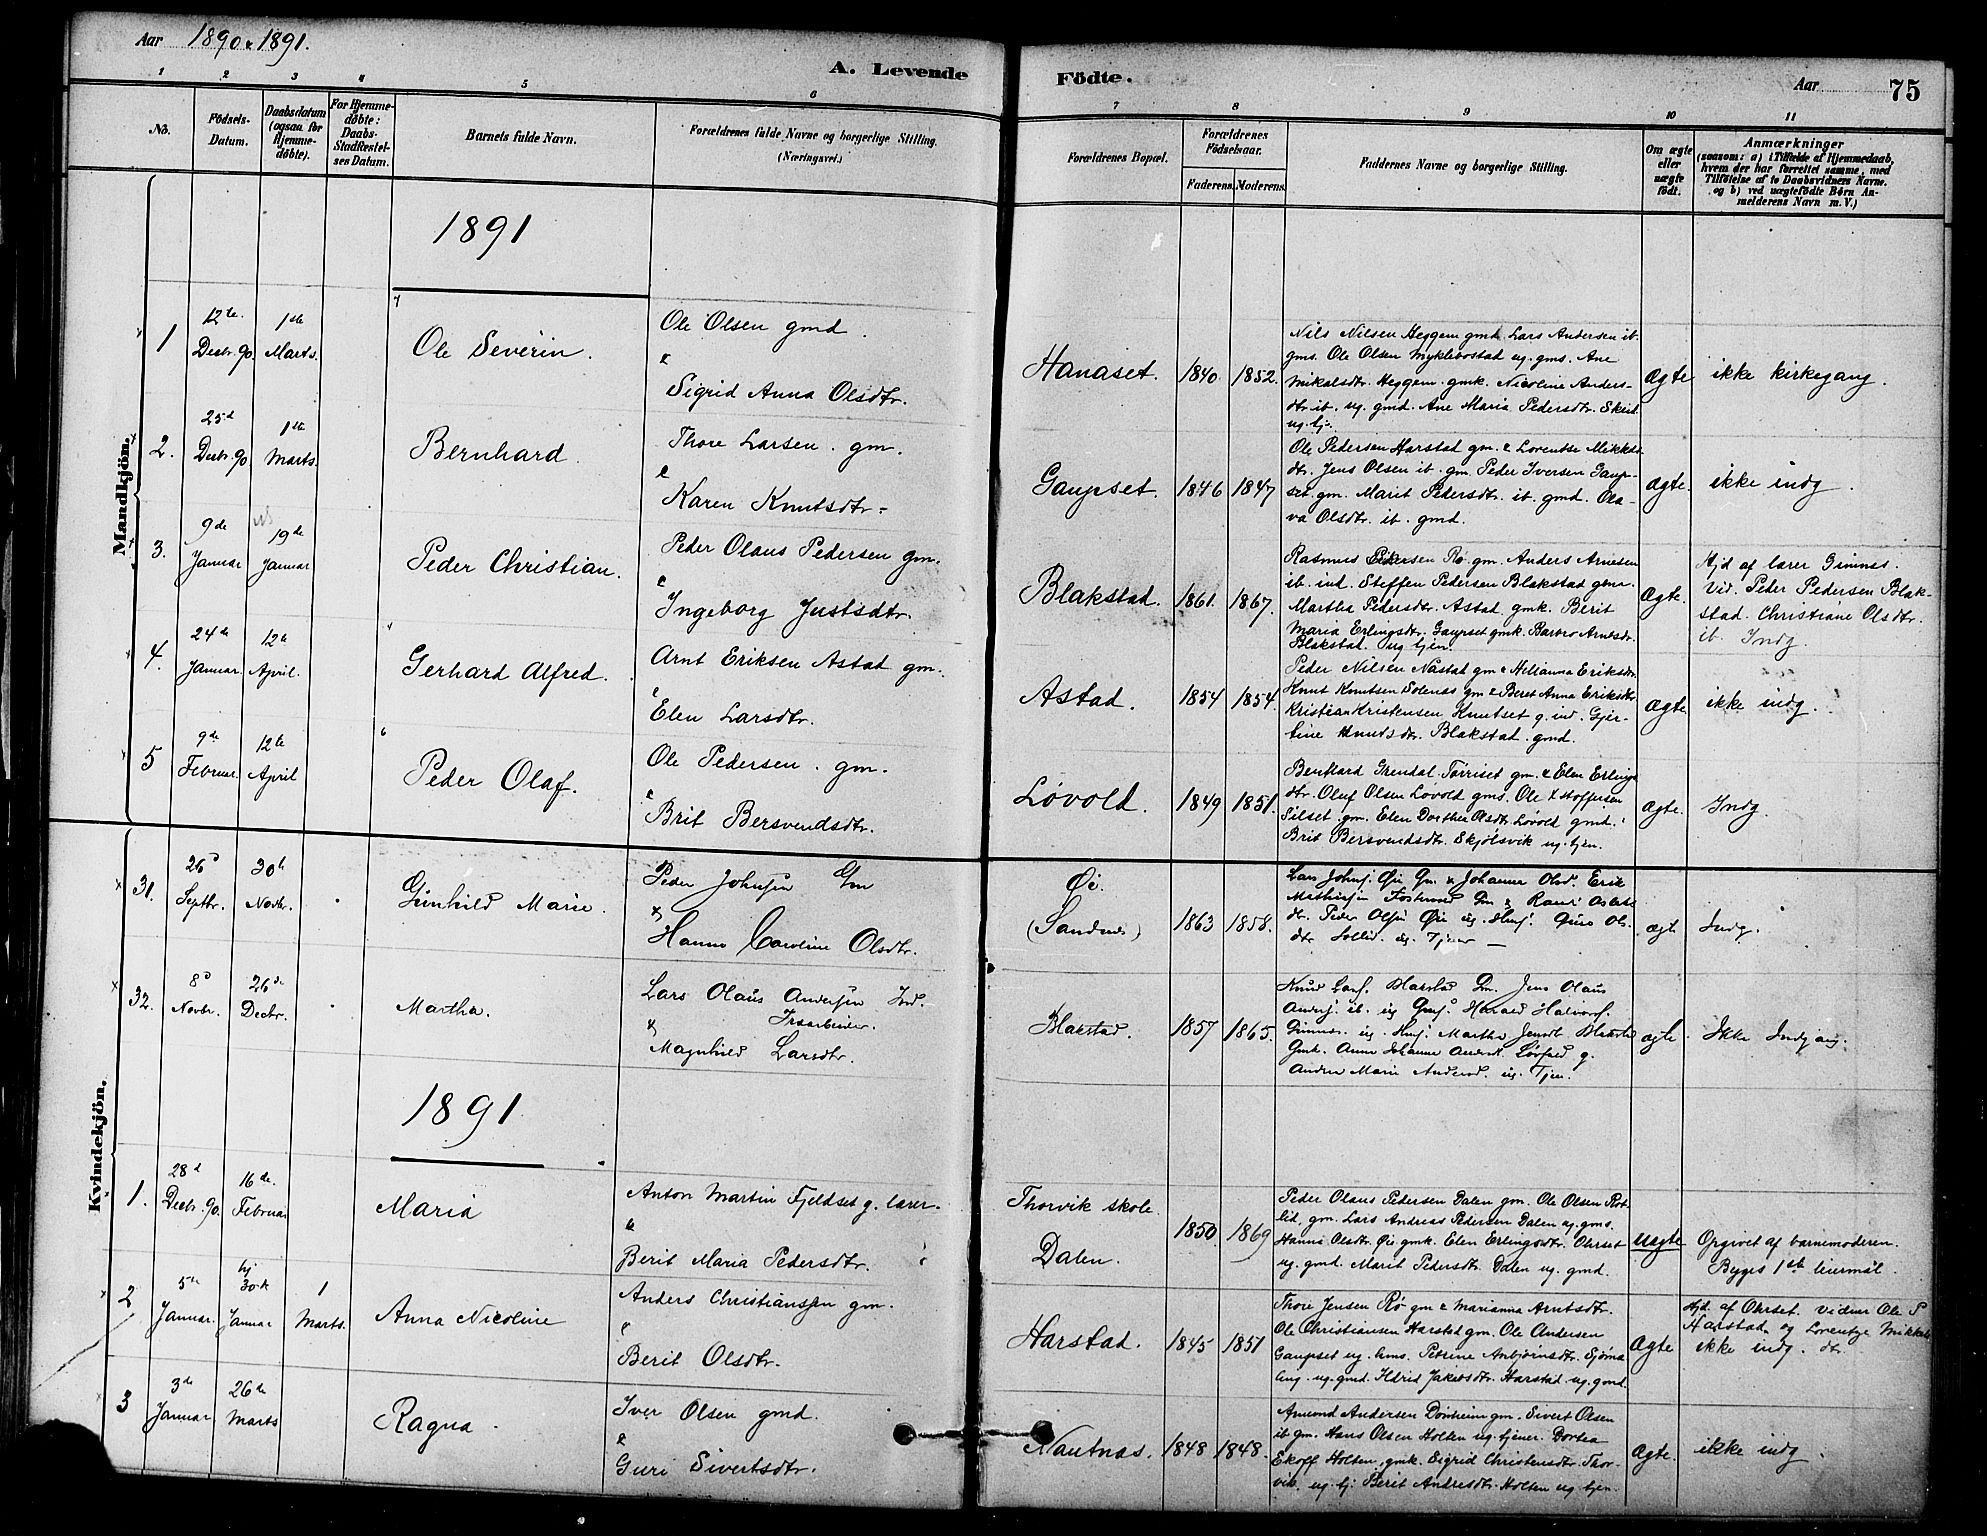 Aar 1890 & 1891.
A. Levende Födte.
Aar 75
1 2 3 4 5 6 7 8 9 10 11
No.
Födsels-Datum.
Daabsdatum (ogsaa for Hjemme-døbte).
For Hjemme-døbte: Daabs-Stadfæstelses Datum.
Barnets fulde Navn.
Forældrenes fulde Navne og borgerlige Stilling. (Næringsvei.)
Forældrenes Bopæl.
Forældrenes Födselsaar.
Faderens. Moderens.
Faddernes Navne og borgerlige Stilling.
Om ægte eller uægte födt.
Anmærkninger
(saasom: a) i Tilfælde af Hjemmedaab, hvem der har forrettet samme, med Tilføielse af to Daabsvidners Navne, og b) ved uægtefødte Børn Anmelderens Navn m. V.)
Mandkjön.
1891
1 12te Decbr. 90. 1ste Marts. Ole Severin.
Ole Olsen gmd.
&
Sigrid Anna Olsdtr.
Hanaset. 1840. 1852.
Nils Nilsen Heggem gmd. Lars Andersen ib.
gms. Ole Olsen Myklebostad ug. gms. Ane
Mikalsdtr. Heggem. gmk. Nicoline Anders-
dtr. ib. ug. gmd. Ane Maria Pedersdtr. Skeid
ug. tj.
Ægte ikke kirkegang.
2. 25d Decbr. 90 1ste Marts. Bernhard.
Thore Larsen. gm.
&
Karen Knutsdtr.
Gaupset. 1846 1847
Ole Pedersen Harstad gm. & Lorentse Mikkels
dtr. Jens Olsen ib. gm. Peder Iversen Gaup-
set. gm. Marit Pedersdtr. ib. gmd. Ola-
va Olsdtr. ib. gmd.
ægte. ikke indg.
3. 9de Januar 19de Januar Peder Christian.
Peder Olaus Pedersen gm.
&
Ingeborg Justsdtr.
Blakstad. 1861. 1867.
Rasmus Pedersen Rö gm. Anders Arnesen
ib. ind. Steffen Pedersen Blakstad gm.
Martha Pedersdtr. Astad gmk. Berit
Maria Erlingsdtr. Gaupset gmk. Barbro Arnesdtr.
Blakstad. ug tjen.
Ægte.
Hjd af lærer Gimnes.
Vid. Peder Pedersen Blak-
stad. Christiane Olsdtr.
ib. Indg
4. 24de Januar. 12te April. Gerhard Alfred.
Arnt Eriksen Astad gm.
&
Elen Larsdtr.
Astad. 1854 1854.
Peder Nilsen Nastad gm & Helianna Eriksdtr.
Knut Knutsen Solenes gm & Beret Anna Eriksdtr
Kristian Kristensen Knutset g. ind. Gjer-
tine Knutsdtr. Blakstad. gmd.
ægte. ikke indg.
5 9de Februar. 12te April Peder Olaf.
Ole Pedersen. gm.
&
Brit Bersvendsdtr.
Løvold. 1849 1851.
Benthard Grendal Törriset gm. & Elen Erlings
dtr. Oluf Olsen Lovold gms. Ole Kstoffersen
Silset. gm. Elen Dorthea Olsdtr Lovold gmd.
Brit Bersvendsdtr. Skjölsvik ug. tjen.
ægte. Indg.
Kvindekjön.
31. 26d Septbr. 30te Novbr. Gunhild Marie.
Peder Johnsen Gm
&
Hanna Caroline Olsdtr.
Öi. (Sandnes) 1863 1858.
Lars Johns. Öie Gm. & Johanne Olsd. Erik
ægt. Indg.
32. 8d Novbr. 26de Decbr. Martha.
Lars Olaus Andersen Ind.
&
Magnhild Larsdtr.
Harstad. 1857 1865.
Knud Lars. Harstad Gm. Jens Olaus
Anders. ib. ug Gms. Harald Halvors.
Gimnes. ug. Martha Jensdt Harstad
Gmk. Anne Johanne
Andrea Marie Andersd. ug. Tjen.
ægte. Ikke Indgang.
1891
1. 28d Decbr. 90. 16de Februar Maria
Anton Martin Fjeldset g. lærer.
&
Berit Maria Pedersdtr.
Thorvik skole.
Dalen. 1850. 1869
Peder Olaus Pedersen Dalen gm. Ole Olsen Rot
lid, gm. Lars Andreas Pedersen Dalen ug. gms.
Hanna Olsdtr. Öie gmk. Elen Erlingsdtr. Ohrset
ug. gmd. Marit Pedersdtr. Dalen ug. gmd.
Uægte
Opgivet af barnemoderen.
Begges 1ste leiermål.
2 5te Januar. hj 30te Januar 1 Marts. Anna Nicoline
Anders Christiansen gm.
&
Berit Olsdtr.
Harstad. 1845 1851
Thore Jensen Rö gm & Marianna Arntsdtr.
Ole Christiansen Harstad gm. Ole Andersen
Gaupset ug. hms. Petrine Anbjörnsdtr. Sjöma
ling. ug. gmd. Ildrid Jakobsdtr. Harstad ug. gmd.
Ægte
Hjd. af Ohrset. vidner Ole P.
Harstad og Lorentze Mikkels
dtr.
ikke indg.
3 3de Januar. 26de Marts Ragna.
Iver Olsen gmd.
&
Guri Sivertsdtr.
Nautnas. 1848 1848.
Amund Andersen Dönheim gm. Sivert Olsen
ib gm. Hans Olsen Holten ug. tjener. Dortea
Ekoff Holten, gmk. Sigrid Christensdtr. Thor-
vik, ug. tj. Berit Andresdtr. Holten ug tjen.
Ægte. ikke indg.